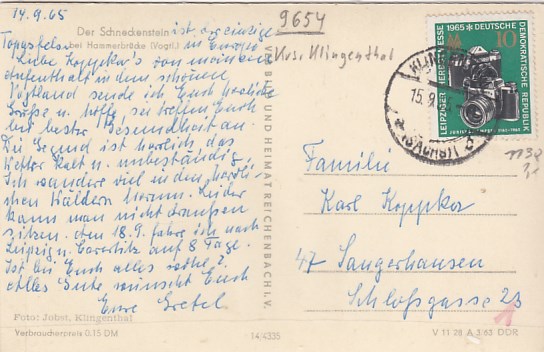 14.9.65
Der Schneckenstein ist der einzige
bei Hammerbrücke (Vogtl.) in Europa
Topasfelsen
Liebe Koppka's von meinem
Aufenthalt in dem schönen
Vogtland sende ich Euch herzliche
Grüße u. hoffe, sie treffen Euch
bei bester Gesundheit an.
Die Gegend ist herrlich, das
Wetter kalt u. unbeständig.
Ich wandere viel in den herrli-
chen Wäldern herum. Leider
kann man nicht draußen
sitzen. Am 18.9. fahre ich nach
Leipzig u. auf 8 Tage.
Ist bei Euch alles
Alles Gute wünscht Euch
Eure Gretel
Foto: Jobst, Klingenthal
Verbraucherpreis 0.15 DM
14/4335
VEB BILD UND HEIMAT REICHENBACH i. V.
9654
Krs. Klingenthal
LEIPZIGER HERBSTMESSE
1965 DEUTSCHE
DEMOKRATISCHE REPUBLIK
10
KLINGEN
15.9
(SACHS)
Familie
Karl Koppka
47 Sangerhausen
Schloßgasse 23
V 11 28 A 3 63 DDR